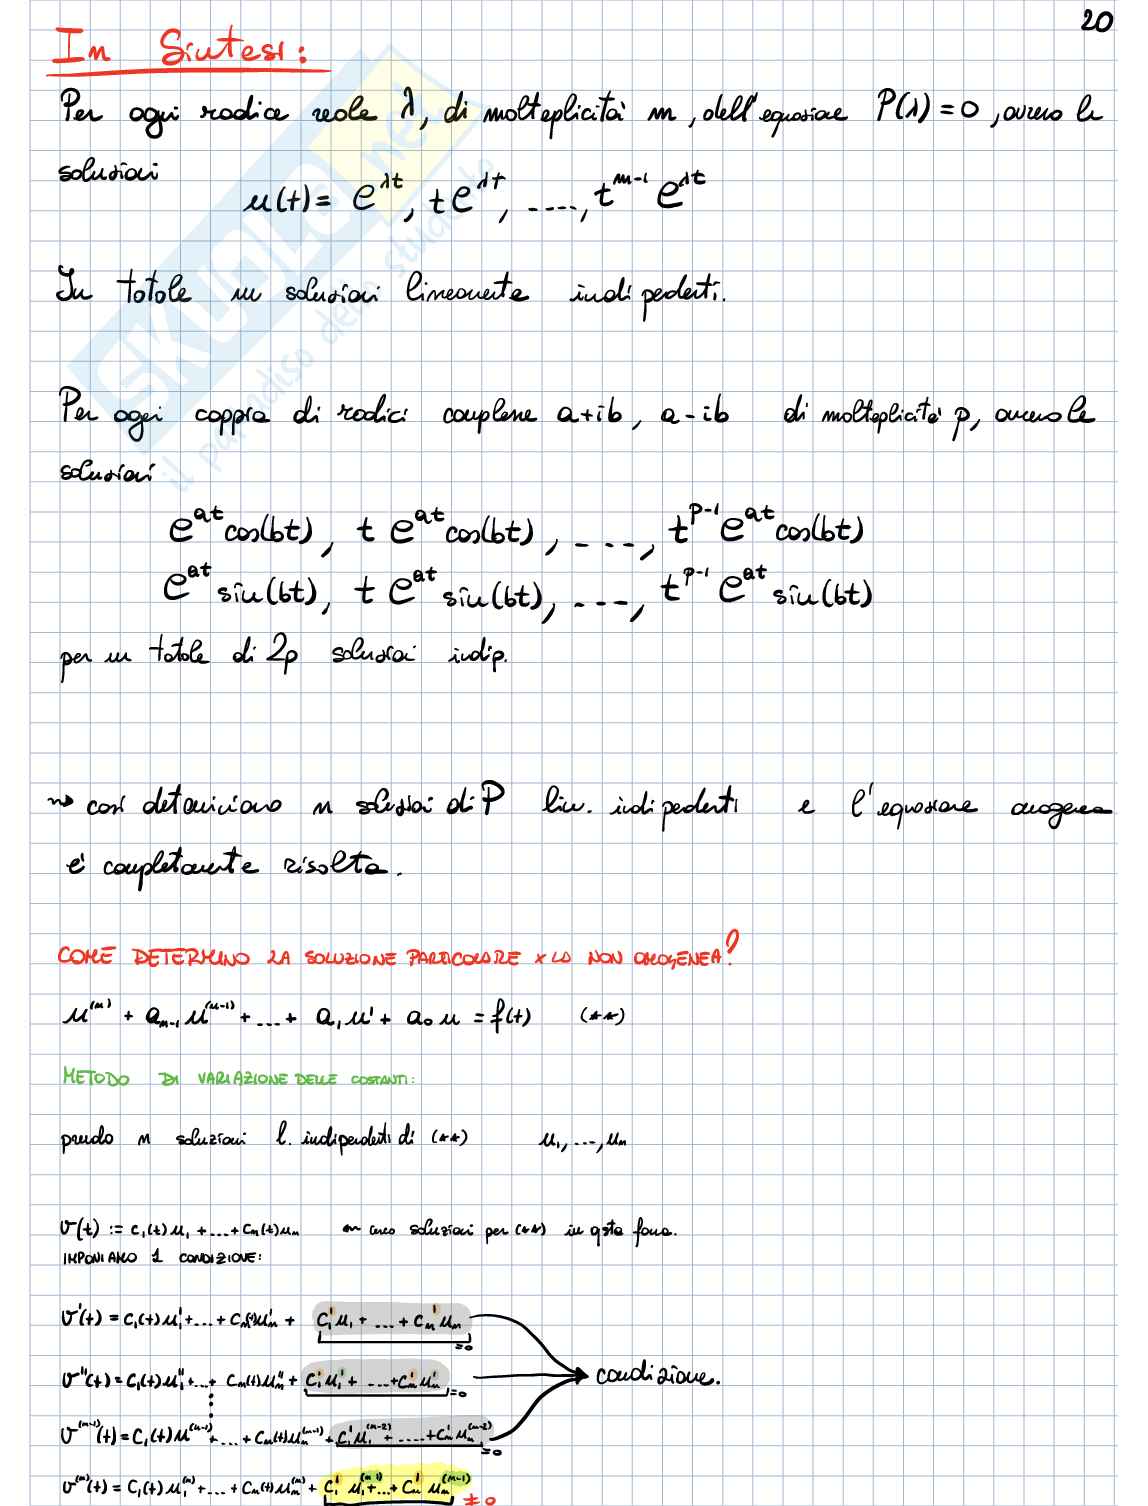 20
In Sintesi:
Per ogni radice reale λ, di molteplicità m, dell'equazione P(λ) = 0, avremo le
soluzioni
u(t) = e^{λt}, t e^{λt}, ...., t^{m-1} e^{λt}
In totale m soluzioni linearmente indipendenti.
Per ogni coppia di radici complesse a+ib, a-ib di molteplicità p, avremo le
soluzioni
e^{at} cos(bt), t e^{at} cos(bt), ...., t^{p-1} e^{at} cos(bt)
e^{at} sin(bt), t e^{at} sin(bt), ...., t^{p-1} e^{at} sin(bt)
per un totale di 2p soluzioni indip.
⇝ così determiniamo n soluzioni di P lin. indipendenti e l'equazione omogenea
è completamente risolta.
COME DETERMINO LA SOLUZIONE PARTICOLARE x LA NON OMOGENEA?
u^{(n)} + a_{n-1} u^{(n-1)} + ... + a_1 u' + a_0 u = f(t) (**)
METODO DI VARIAZIONE DELLE COSTANTI:
prendo n soluzioni l. indipendenti di (**) u_1, ..., u_n
v(t) := c_1(t) u_1 + ... + c_n(t) u_n cerco soluzioni per (**) in qsta forma.
IMPONIAMO 1 CONDIZIONE:
v'(t) = c_1(t) u_1' + ... + c_n(t) u_n' + c_1' u_1 + ... + c_n' u_n =0
v''(t) = c_1(t) u_1'' + ... + c_n(t) u_n'' + c_1' u_1' + ... + c_n' u_n' =0 condizione.
v^{(n-1)}(t) = c_1(t) u^{(n-1)} + ... + c_n(t) u_n^{(n-1)} + c_1' u_1^{(n-2)} + .... + c_n' u_n^{(n-2)} =0
v^{(n)}(t) = c_1(t) u_1^{(n)} + ... + c_n(t) u_n^{(n)} + c_1' u_1^{(n-1)} + ... + c_n' u_n^{(n-1)} ≠ 0
SKUOLA.net
il paradiso dello studente